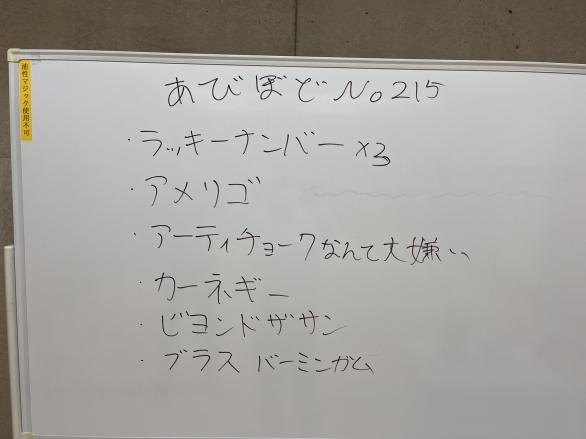 油性マジック使用不可
あびぼど No215
・ラッキーナンバー ×3
・アメリゴ
・アーティチョークなんて大嫌い
・カーネギー
・ビヨンドザサン
・ブラス バーミンガム